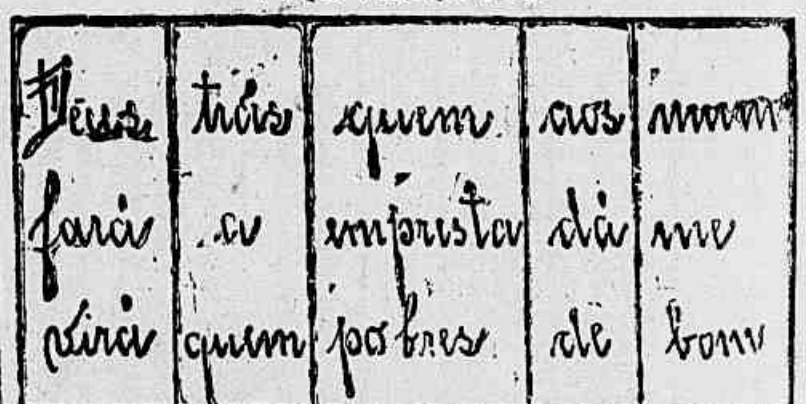 Deus trás quem aos
fará a empresta dá me
virá quem pobres de bom